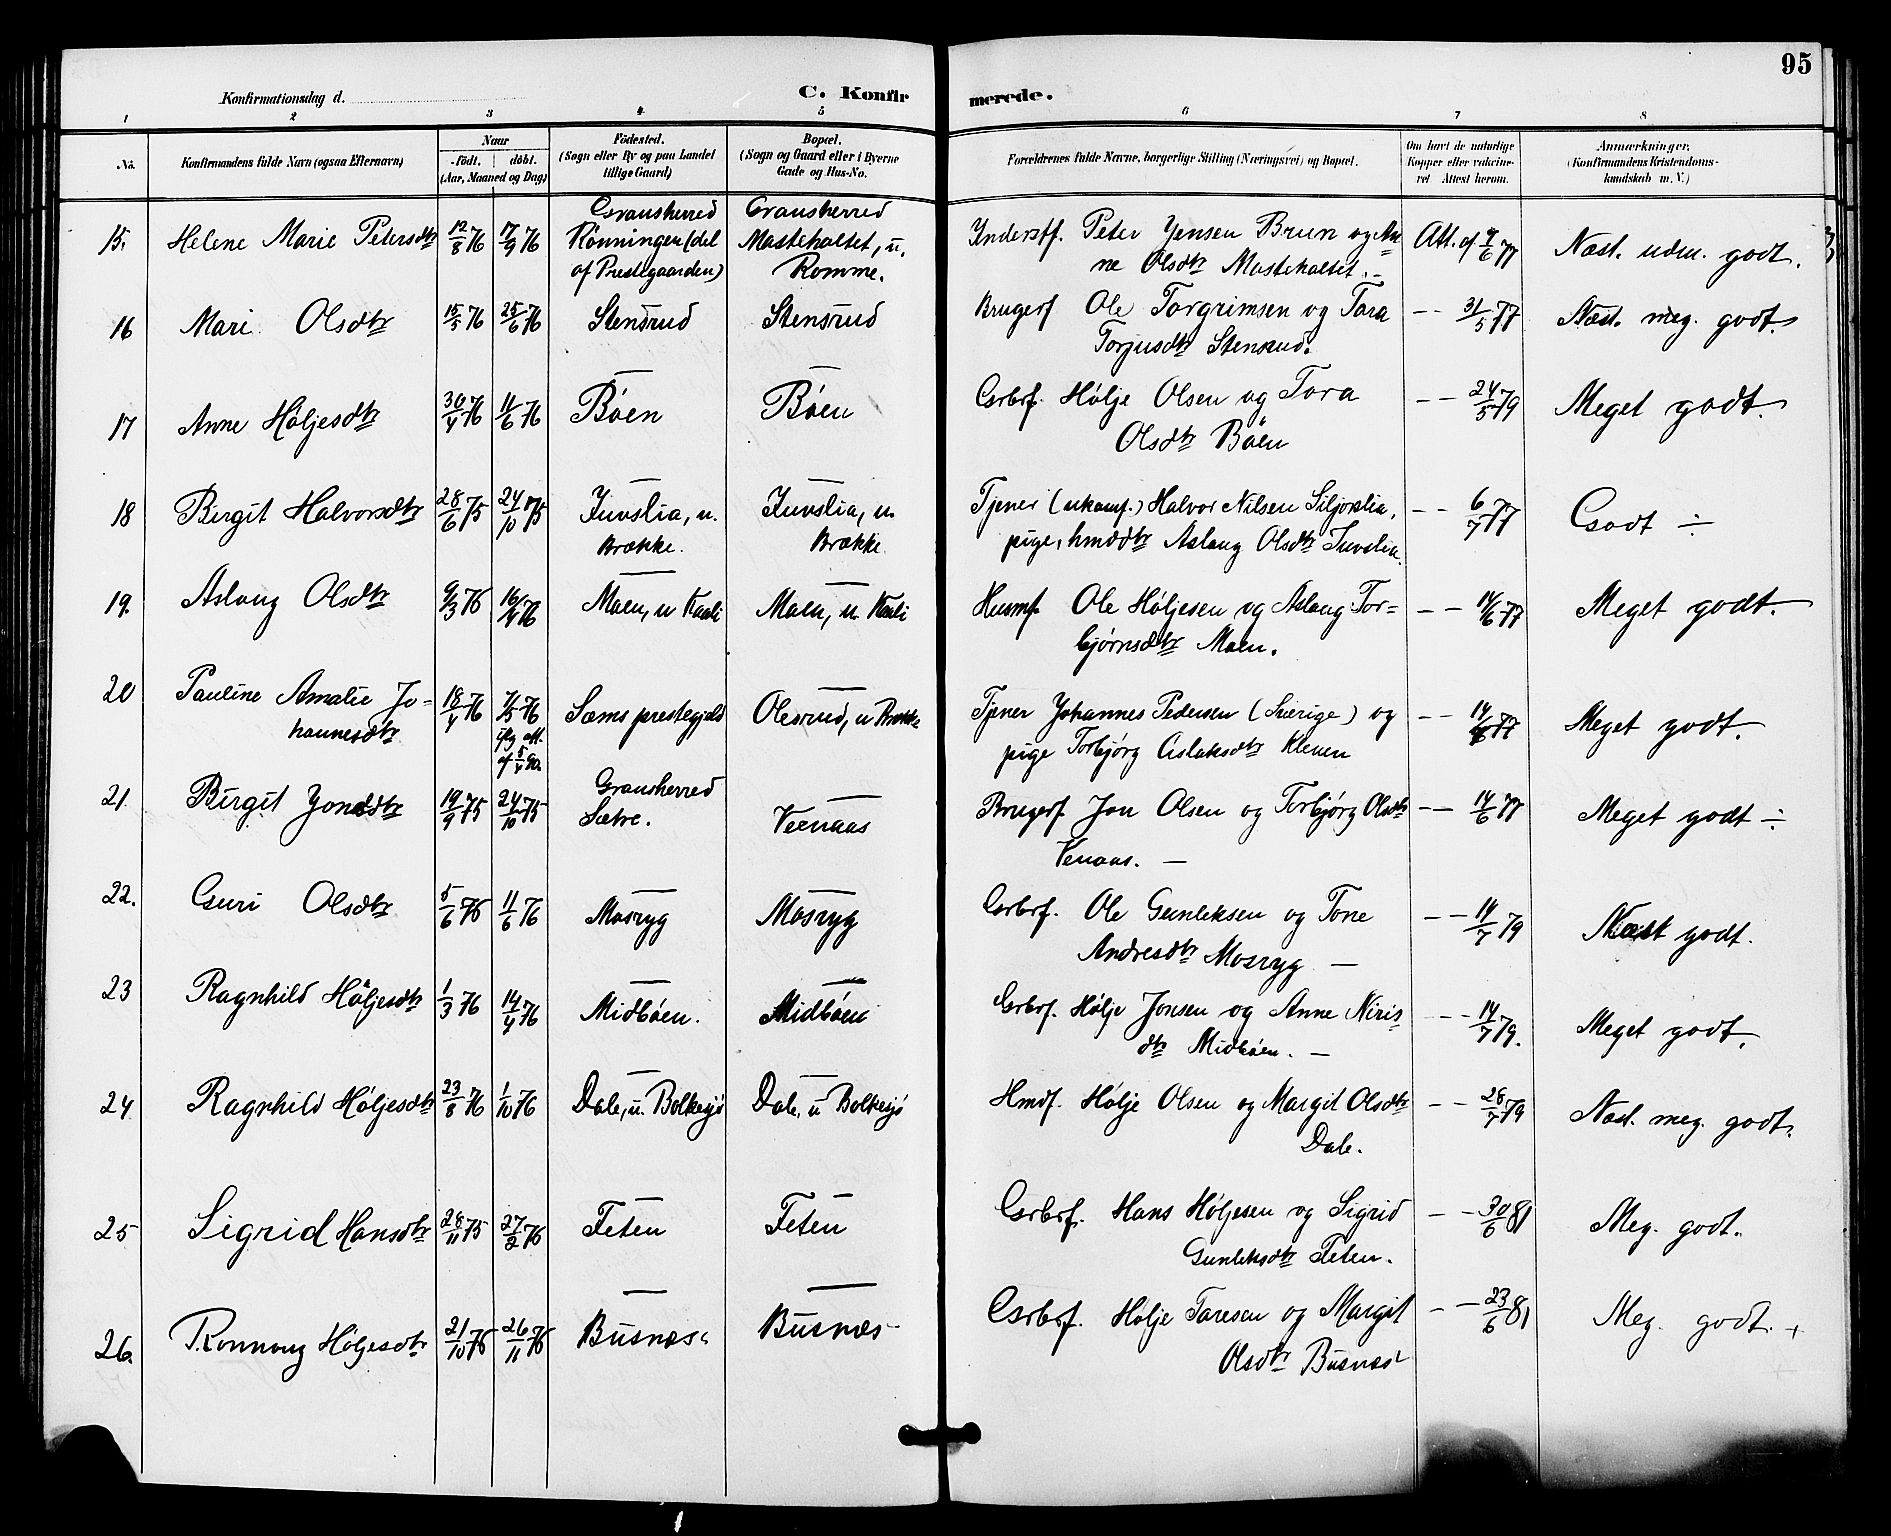 95
Konfirmationsdag d.
C. Konfir merede.
1 2 3 4 5 6 7 8
No. Konfirmandens fulde Navn (ogsaa Efternavn) Naar født. døbt. (Aar, Maaned og Dag) Fødested. (Sogn eller By og paa Landet tillige Gaard) Bopæl. (Sogn og Gaard eller i Byerne Gade og Hus-No. Forældrenes fulde Navne, borgerlige Stilling (Næringsvei) og Bopæl. Om havt de naturlige Kopper eller vakcineret Attest herom. Anmærkninger. (Konfirmandens Kristendomskundskab m. V.)
15. Helene Marie Petersdtr 12/8 76 17/9 76 Gransherred Rönningen (del af Prestegaarden) Gransherred Masteholtet, u. Romme. Inderstf. Peter Jensen Brun og An-
ne Olsdtr Masteholtet. – Att. af 7/6 77 Næst. udm. godt.
16 Mari Olsdtr 15/5 76 25/6 76 Stensrud Stensrud Brugerf Ole Torgrimsen og Tara
Torjusdtr Stensrud. – – 31/5 77 Næst. meg. godt.
17 Anne Höljesdtr 30/4 76 11/6 76 – Böen – Böen Garbrf. Hølje Olsen og Tora
Olsdtr Böen – – 24/5 79 Meget godt.
18 Birgit Halvorsdtr 28/6 75 24/10 75 – Juvslia, u. Brække. – Juvslia, u. Brække Tjener (ukonf.) Halvor Nilsen Siljorslia,
pige, hmddtr Aslaug Olsdtr Juvslia. – – 6/7 77 Godt ÷
19. Aslaug Olsdtr 9/3 76 16/4 76 – Moen, u Kaali – Moen, u. Kaali Husmf. Ole Höljesen og Aslaug Tor-
bjørnsdtr Moen. – – 14/6 77 Meget godt.
20 Pauline Amalie Jo-
hannesdtr 18/4 76 7/5 76 ifg att. af 5/4 90. Sems prestegjeld – Olesrud, u Brække Tjener Johannes Pedersen (Sverige) og
pige Torbjørg Aslaksdtr Kleven – – 14/6 77 Meget godt.
21. Birgit Jonsdtr 19/9 75 24/10 75 Gransherred Sætre. – Veenaas Brugerf Jon Olsen og Torbjørg Olsdtr
Venaas. – – – 14/6 77 Meget godt ÷
22. Guri Olsdtr 5/6 76 11/6 76 – Mosryg – Mosryg Garbrf. Ole Gunleksen og Tone
Andresdtr Mosryg – – – 14/7 79 Næst godt.
23 Ragnhild Höljesdtr 1/3 76 14/4 76 – Midböen. – Midböen Garbrf. Hølje Jonsen og Anne Niris-
dtr Midböen. – – – 14/7 79. Meget godt.
24 Ragnhild Höljesdtr 23/8 76 1/10 76 – Dale, u. Bolkesjö – Dale, u Bolkesjö Hmdf. Hølje Olsen og Margit Olsdtr
Dale. – – 28/7 79 Næst. meg. godt.
25 Sigrid Hansdtr 28/11 75 27/2 76 – Feten – Feten Garbrf. Hans Höljesen og Sigrid
Gunleksdtr Feten. – – 30/6 81 Meg. godt.
26. Rønnaug Höljesdtr 21/10 76 26/11 76 – Busnes – Busnes Garbrf. Hølje Taresen og Margit
Olsdtr Busnes – – 23/6 81 Meg. godt. +